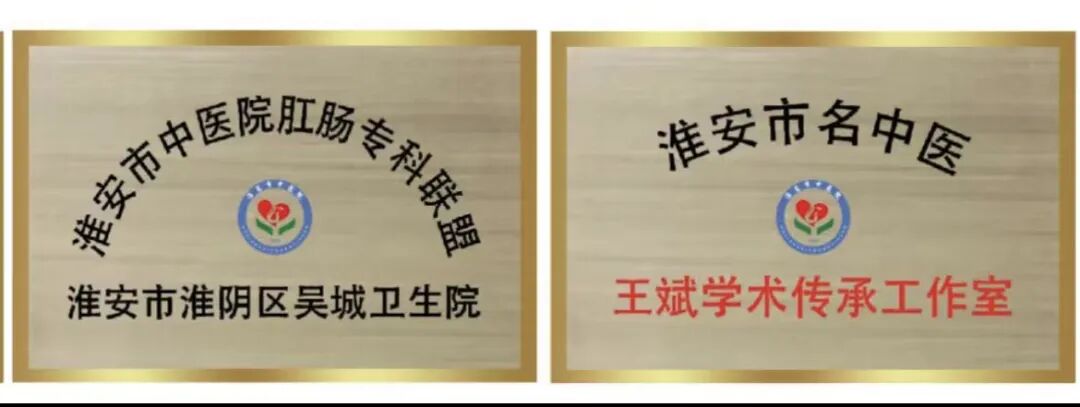 淮安市中医院肛肠专科联盟
淮安市淮阴区吴城卫生院
淮安市名中医
王斌学术传承工作室